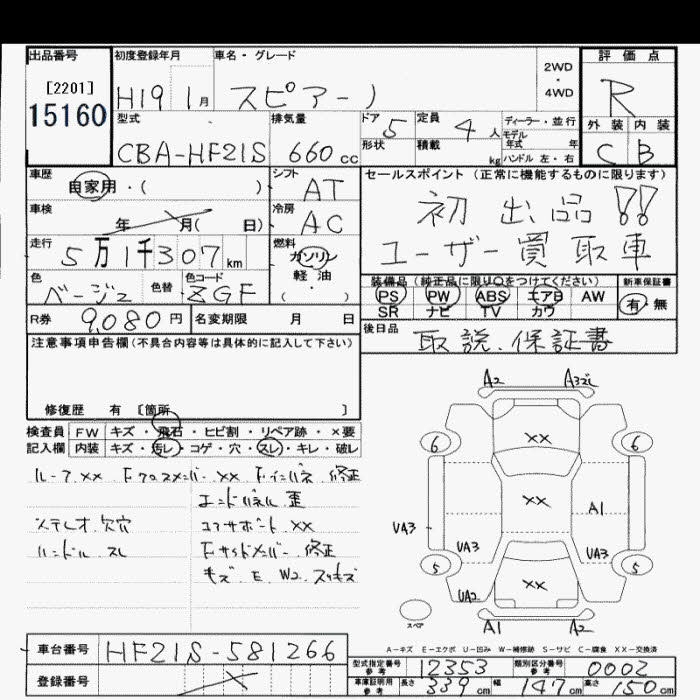 出品番号 初度登録年月 車名・グレード 評価点
[2201] 15160 H19 1月 スピアーノ 2WD・4WD R
型式 排気量 ドア 5 定員 4人 ディーラー・並行 外装 内装
CBA-HF21S 660cc 形状 積載 kg モデル年式 年 ハンドル 左・右 C B
車歴 自家用・( ) シフト AT セールスポイント(正常に機能するものに限ります)
車検 年 月( 日) 冷房 AC 初出品!!
走行 5万1千307km 燃料 ガソリン 軽油 ・( ) ユーザー買取車
色 ベージュ 色替 色コード ZGF 装備品(純正品に限り○をつけてください) 新車保証書
PS PW ABS エアB AW 有・無
R券 9,080円 名変期限 月 日 SR ナビ TV カワ
注意事項申告欄(不具合内容等は具体的に記入して下さい) 後日品 取説.保証書
修復歴 有 [箇所 ]
検査員 FW キズ・飛石・ヒビ割・リペア跡・×要
記入欄 内装 キズ・汚レ・コゲ・穴・スレ・キレ・破レ
ルーフ.XX F.クロスメンバー.XX F.インパネ.修正
エンドパネル.歪
ステレオ.欠穴 コアサポート.XX
ハンドル.スレ F.サイドメンバー.修正
キズ.E.W2.スリキズ
A2
XX
6 6
XX A1
VA3 UA3 UA3
5 5
UA2 XX
スペア A1 A2
A-キズ E-エクボ U-凹み W-補修跡 S-サビ C-腐食 XX-交換済
車台番号 HF21S-581266
型式指定番号 参考 12353 類別区分番号 参考 0002
登録番号 車庫証明用 参考 長さ 339cm 幅 147cm 高さ 150cm